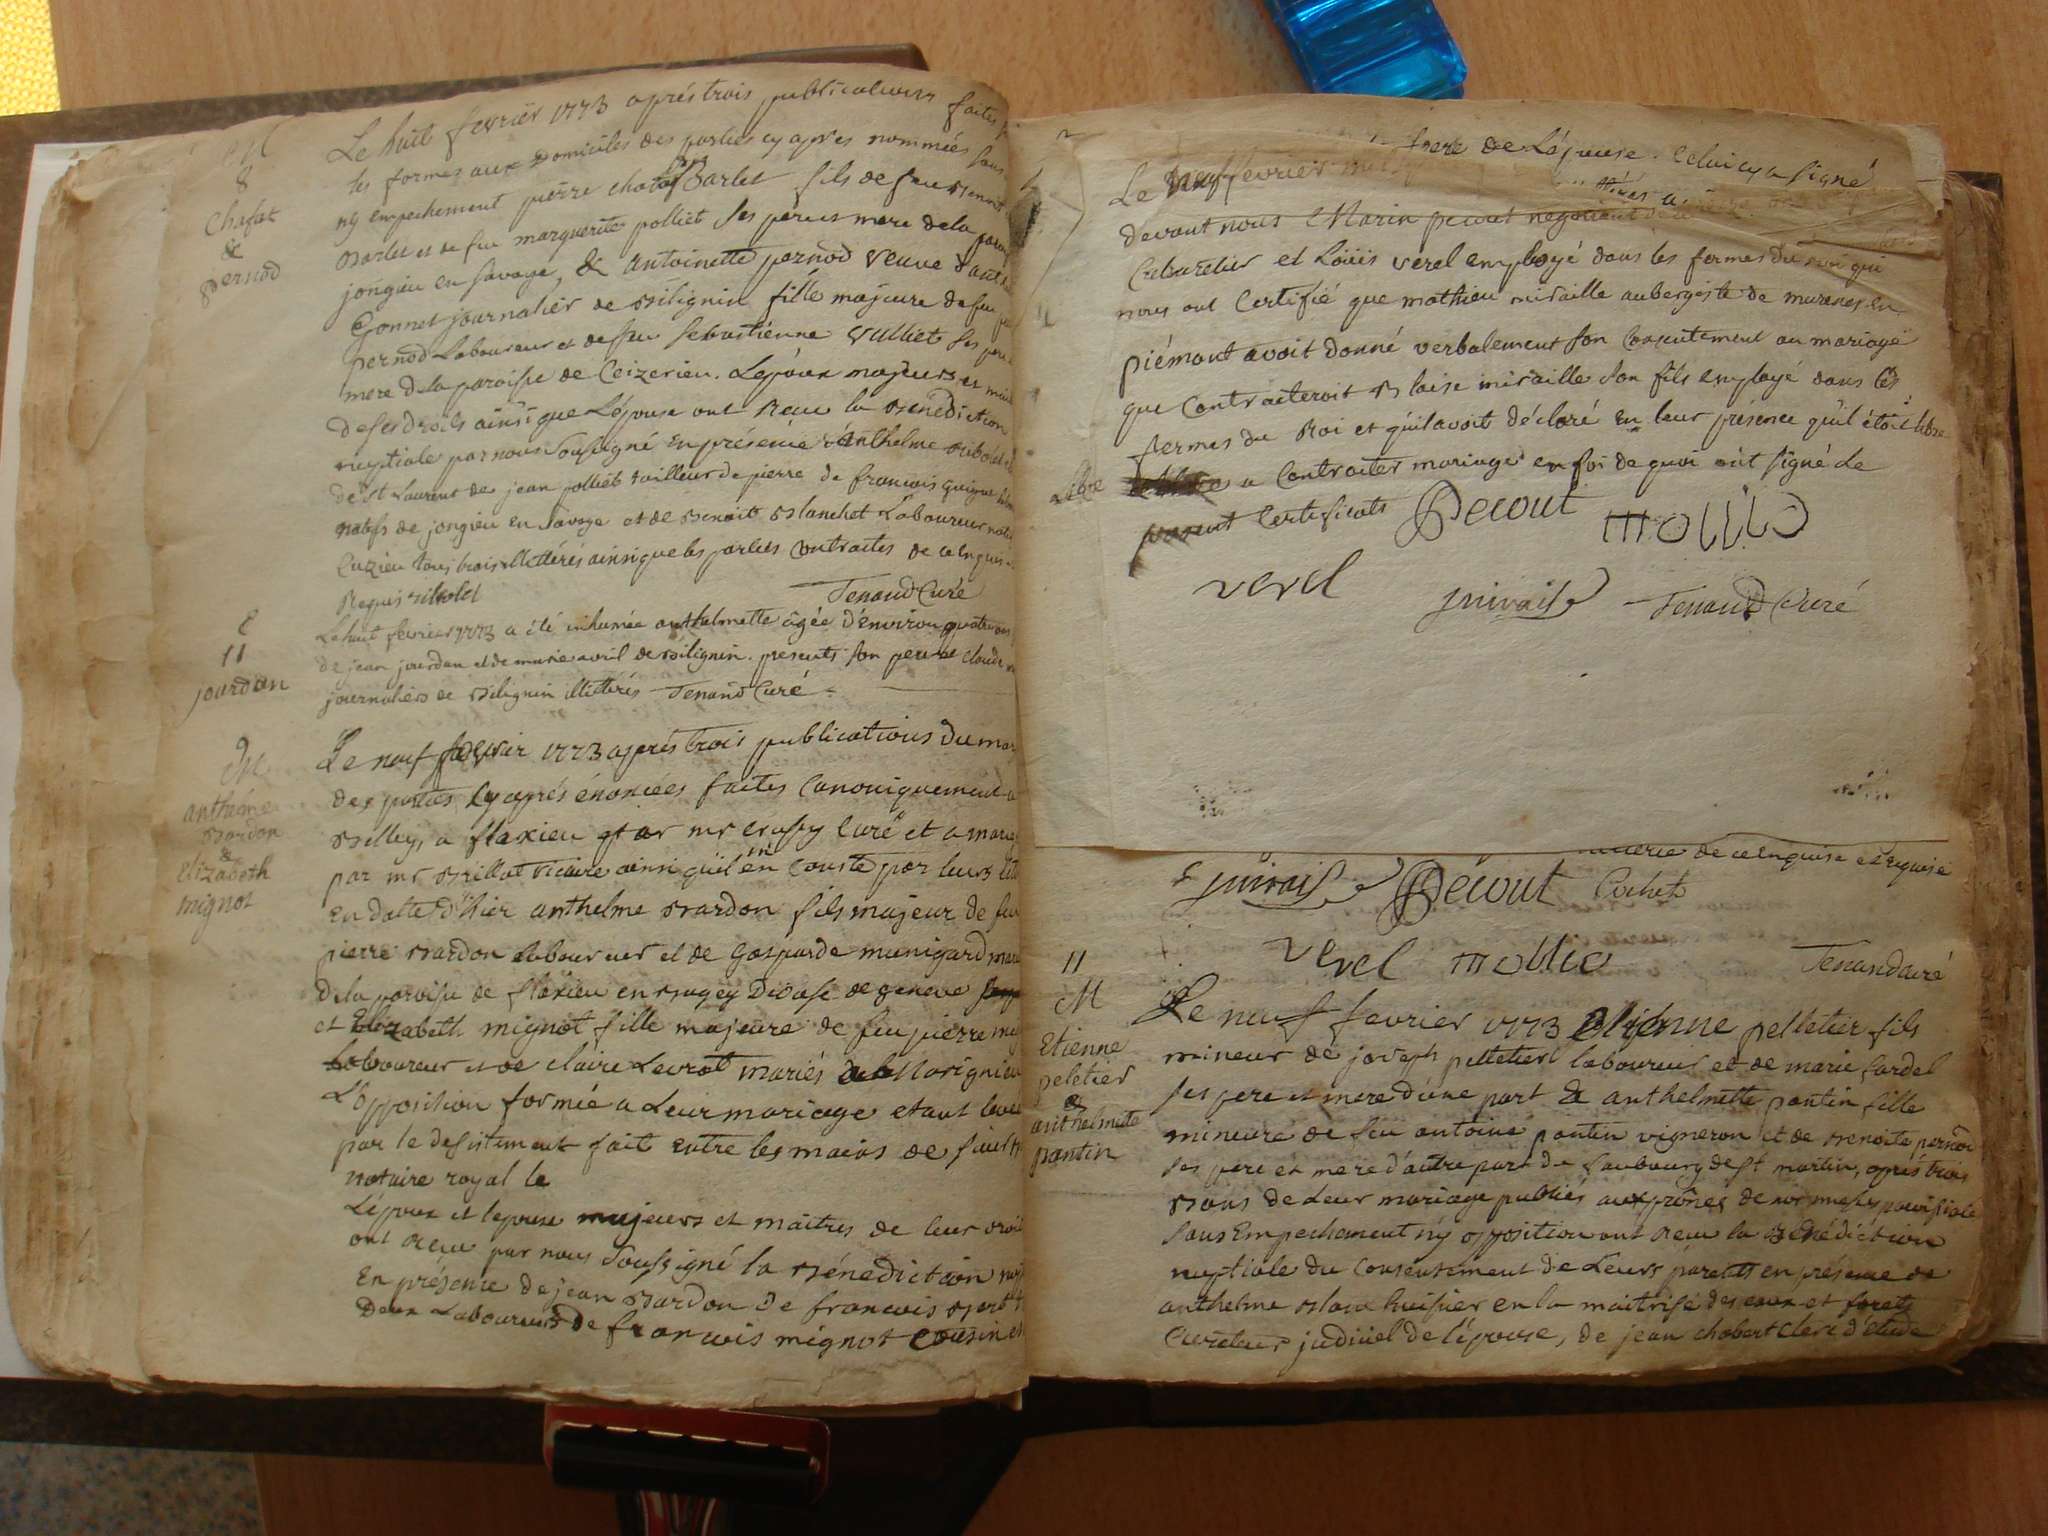 M
8
Chafat
&
pernod
Le huit fevrier 1773 après trois publications faites
les formes aux Domiciles des parties cy après nommées sans
ny empechement pierre Barlet fils de feu Benoit
Barlet et de feu marguerite polliet ses pere et mere de la
jongieu en Savoye, & antoinette pernod veuve
Gonnet journalier de Bilignin fille majeure de feu
pernod Laboureur et de feu Sebastienne Vulliet ses pere
mere de la paroisse de Ceizerieu. L'époux majeur et
de ses droits ainsi que L'épouse ont Recu la Benediction
nuptiale par nous Soussigné en présence d'Anthelme Ribolet
de St Laurent de jean polliet tailleur de pierre de francois
natifs de jongieu en Savoye et de Benoit Blanchet Laboureur
Cuzieu tous trois illettérés ainsi que les parties Contractes de ce Enquis
Requis Ribolet Tenand Curé
11
jourdan
Le huit fevrier 1773 a été inhumée anthelmette âgée D'Environ quatre ans
de jean jourdan et de marie avril de Bilignin. presents son pere et claude
journaliers de Bilignin illettérés Tenand Curé
M
anthelme
Bardon
&
Elizabeth
mignot
Le neuf fevrier 1773 après Trois publications du
des parties Cy après énoncées faites Canoniquement a
Belley, a flaxieu par mr Curé et a
par mr Brillat Vicaire ainsi qu'il en Conste par leurs
En datte d'hier anthelme Bardon fils majeur de feu
pierre Bardon Laboureur et de Gasparde munigard
De la paroisse de flaxieu en Bugey Diocese de geneve
et Elizabeth mignot fille majeure de feu pierre
Laboureur et de claire Levrat mariés de Marignieu
L'opposition formée a Leur mariage etant levée
par le desistement fait entre les mains de
notaire royal le
L'époux et l'epouse majeurs et maitres de leur
ont Recu par nous Soussigné la Bénediction
En présence de jean Bardon De francois
Deux Laboureurs de francois mignot Cousin
frere de L'épouse. Celui cy a signé
Le neuf fevrier
devant nous Marin pecout negociant
Cabaretier et Loüis verel employé dans les fermes du roi qui
nous ont Certifié que mathieu miraille aubergiste de murenes en
piémont avoit donné verbalement son Consentement au mariage
que Contracteroit Blaise miraille son fils employé dans les
fermes du Roi et qu'il avoit déclaré en leur présence qu'il étoit libre
a Contracter mariage en foi de quoi ont signé le
present Certificats Pecout mollio
verel Tenand Curé
de ce Enquise e Requise
Pecout Cochet
verel mollio
Tenand curé
11
M
Etienne
peletier
&
anthelmette
pantin
Le neuf fevrier 1773 Etienne pelletier fils
mineur de joseph pelletier laboureur et de marie Sardel
ses pere et mere d'une part & anthelmette pantin fille
mineure de feu antoine pantin vigneron et de Benoite pernod
ses pere et mere d'autre part du faubourg de st martin, après trois
Bans de Leur mariage publiés aux prônes de nos messes paroissiale
Sans Empechement ny opposition ont Recu la Bénédiction
nuptiale du Consentement de Leurs parents en présence de
anthelme huissier en la maitrise des eaux et forets
Curateur judiciel de l'épouse, de jean chabert clerc d'étude